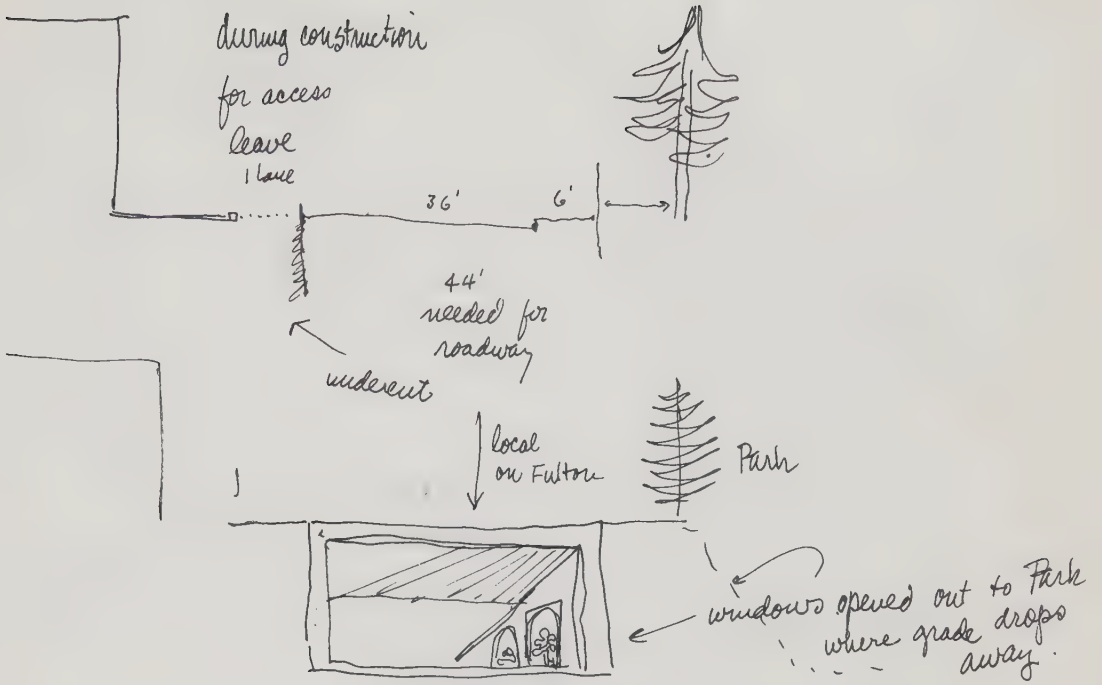 during construction
for access
leave
1 lane
36'
6'
44'
needed for
roadway
undercut
local
on Fulton
Park
windows opened out to Park
where grade drops
away.